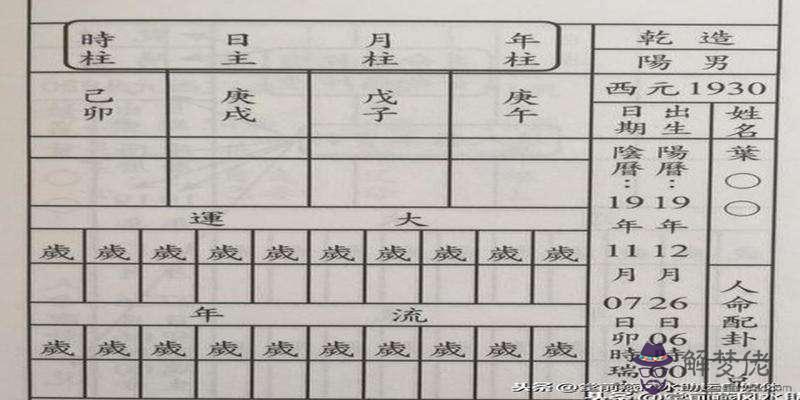 年柱 月柱 日主 時柱
庚午 戊子 庚戌 己卯
大 運
歲 歲 歲 歲 歲 歲 歲 歲 歲 歲
流 年
歲 歲 歲 歲 歲 歲 歲 歲 歲 歲
乾 造
陽 男
西元1930
姓名
葉○○
人命配卦
出生日期
陽曆:19年12月26日06時00
陰曆:19年11月07日卯時瑞
解梦佬
头条@